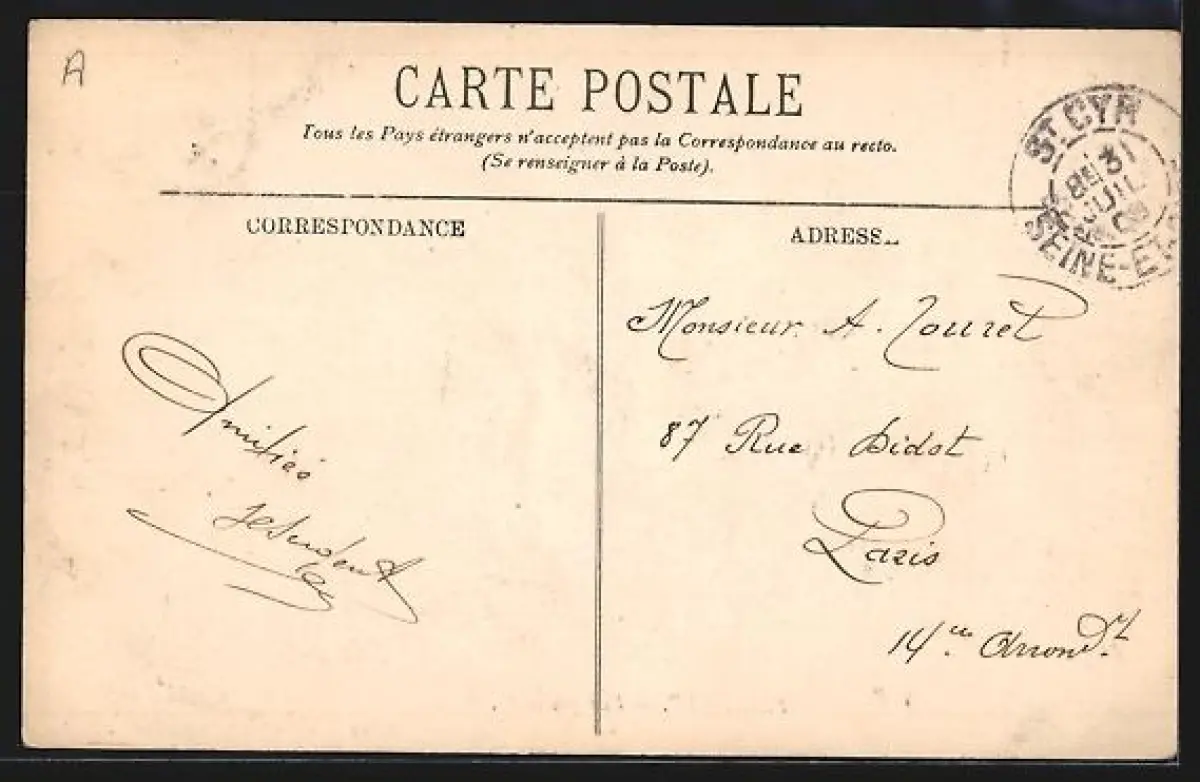 A
CARTE POSTALE
Tous les Pays étrangers n'acceptent pas la Correspondance au recto.
(Se renseigner à la Poste).
ST CYR
31
JUIL
SEINE-ET
CORRESPONDANCE
ADRESSE
Monsieur A. Touret
87 Rue Didot
Paris
14me Arrondt
Amitiés